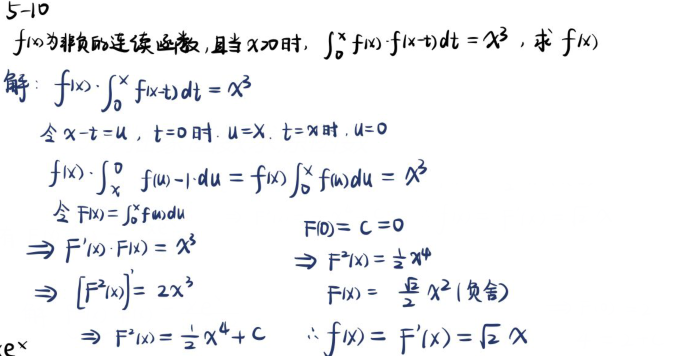 5-10
f(x)为非负的连续函数,且当x>0时, ∫₀ˣ f(x)·f(x-t)dt = x³, 求 f(x)
解: f(x)·∫₀ˣ f(x-t)dt = x³
令 x-t=u, t=0时. u=x. t=x时. u=0
f(x)·∫ₓ⁰ f(u)-1·du = f(x)∫₀ˣ f(u)du = x³
令 F(x)=∫₀ˣ f(u)du
⇒ F'(x)·F(x) = x³
⇒ [F²(x)]' = 2x³
⇒ F²(x) = 1/2 x⁴ + C
F(0) = C = 0
⇒ F²(x) = 1/2 x⁴
F(x) = √2/2 x² (负舍)
∴ f(x) = F'(x) = √2 x
eˣ